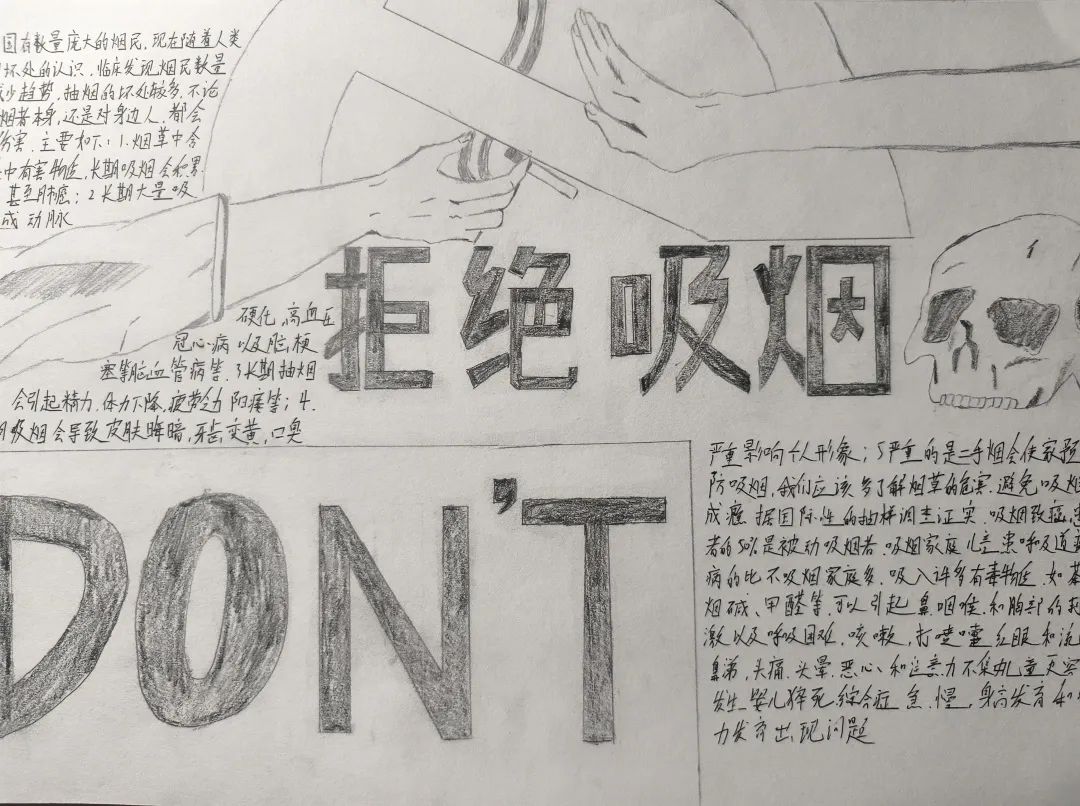 国有数量庞大的烟民,现在随着人类
坏处的认识,临床发现烟民数量
少趋势,抽烟的坏处较多,不论
烟者本身,还是对身边人,都会
伤害,主要如下:1.烟草中含
中有害物质,长期吸烟会积累
甚至肺癌;2长期大量吸
成动脉
拒绝吸烟
硬化,高血压
冠心病以及脑梗
塞等脑血管病等,3长期抽烟
会引起精力,体力下降,疲劳
阳痿等;4.
吸烟会导致皮肤晦暗,牙齿变黄,口臭
DON'T
严重影响个人形象;5严重的是二手烟会使家
防吸烟,我们应该多了解烟草的危害,避免吸烟
成瘾,据国际性的抽样调查证实,吸烟致癌患
者的50%是被动吸烟者,吸烟家庭儿童患呼吸道
病的比不吸烟家庭多,吸入许多有毒物质,如
烟碱、甲醛等,可以引起鼻咽喉,和胸部的
激以及呼吸困难,咳嗽,打喷嚏,红眼和流
鼻涕,头痛,头晕,恶心,和注意力不集
儿童更
发生婴儿猝死综合征,急,慢,身高发育和
力发育出现问题